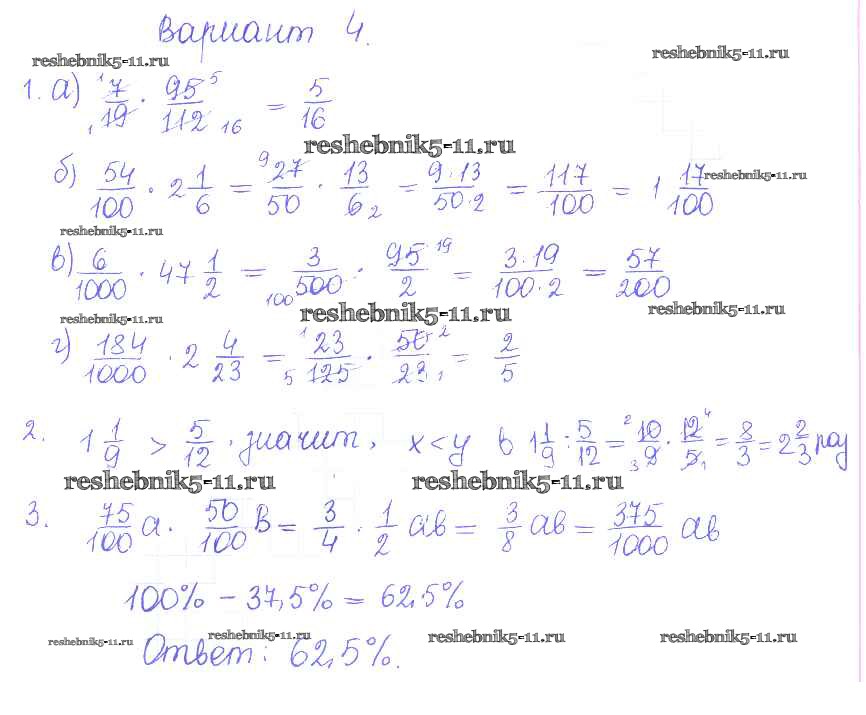 Вариант 4.
reshebnik5-11.ru
reshebnik5-11.ru
1. а) 7/19 · 95/112 = 5/16
reshebnik5-11.ru
б) 54/100 · 2 1/6 = 27/50 · 13/6 = 9·13/50·2 = 117/100 = 1 17/100
reshebnik5-11.ru
reshebnik5-11.ru
в) 6/1000 · 47 1/2 = 3/500 · 95/2 = 3·19/100·2 = 57/200
reshebnik5-11.ru
reshebnik5-11.ru
reshebnik5-11.ru
г) 184/1000 · 2 4/23 = 23/125 · 50/23 = 2/5
2. 1 1/9 > 5/12 · значит, x < y в 1 1/9 : 5/12 = 10/9 · 12/5 = 8/3 = 2 2/3 раз
reshebnik5-11.ru
reshebnik5-11.ru
3. 75/100 а · 50/100 в = 3/4 · 1/2 ав = 3/8 ав = 375/1000 ав
100% – 37,5% = 62,5%
reshebnik5-11.ru
reshebnik5-11.ru
reshebnik5-11.ru
reshebnik5-11.ru
Ответ: 62,5%.